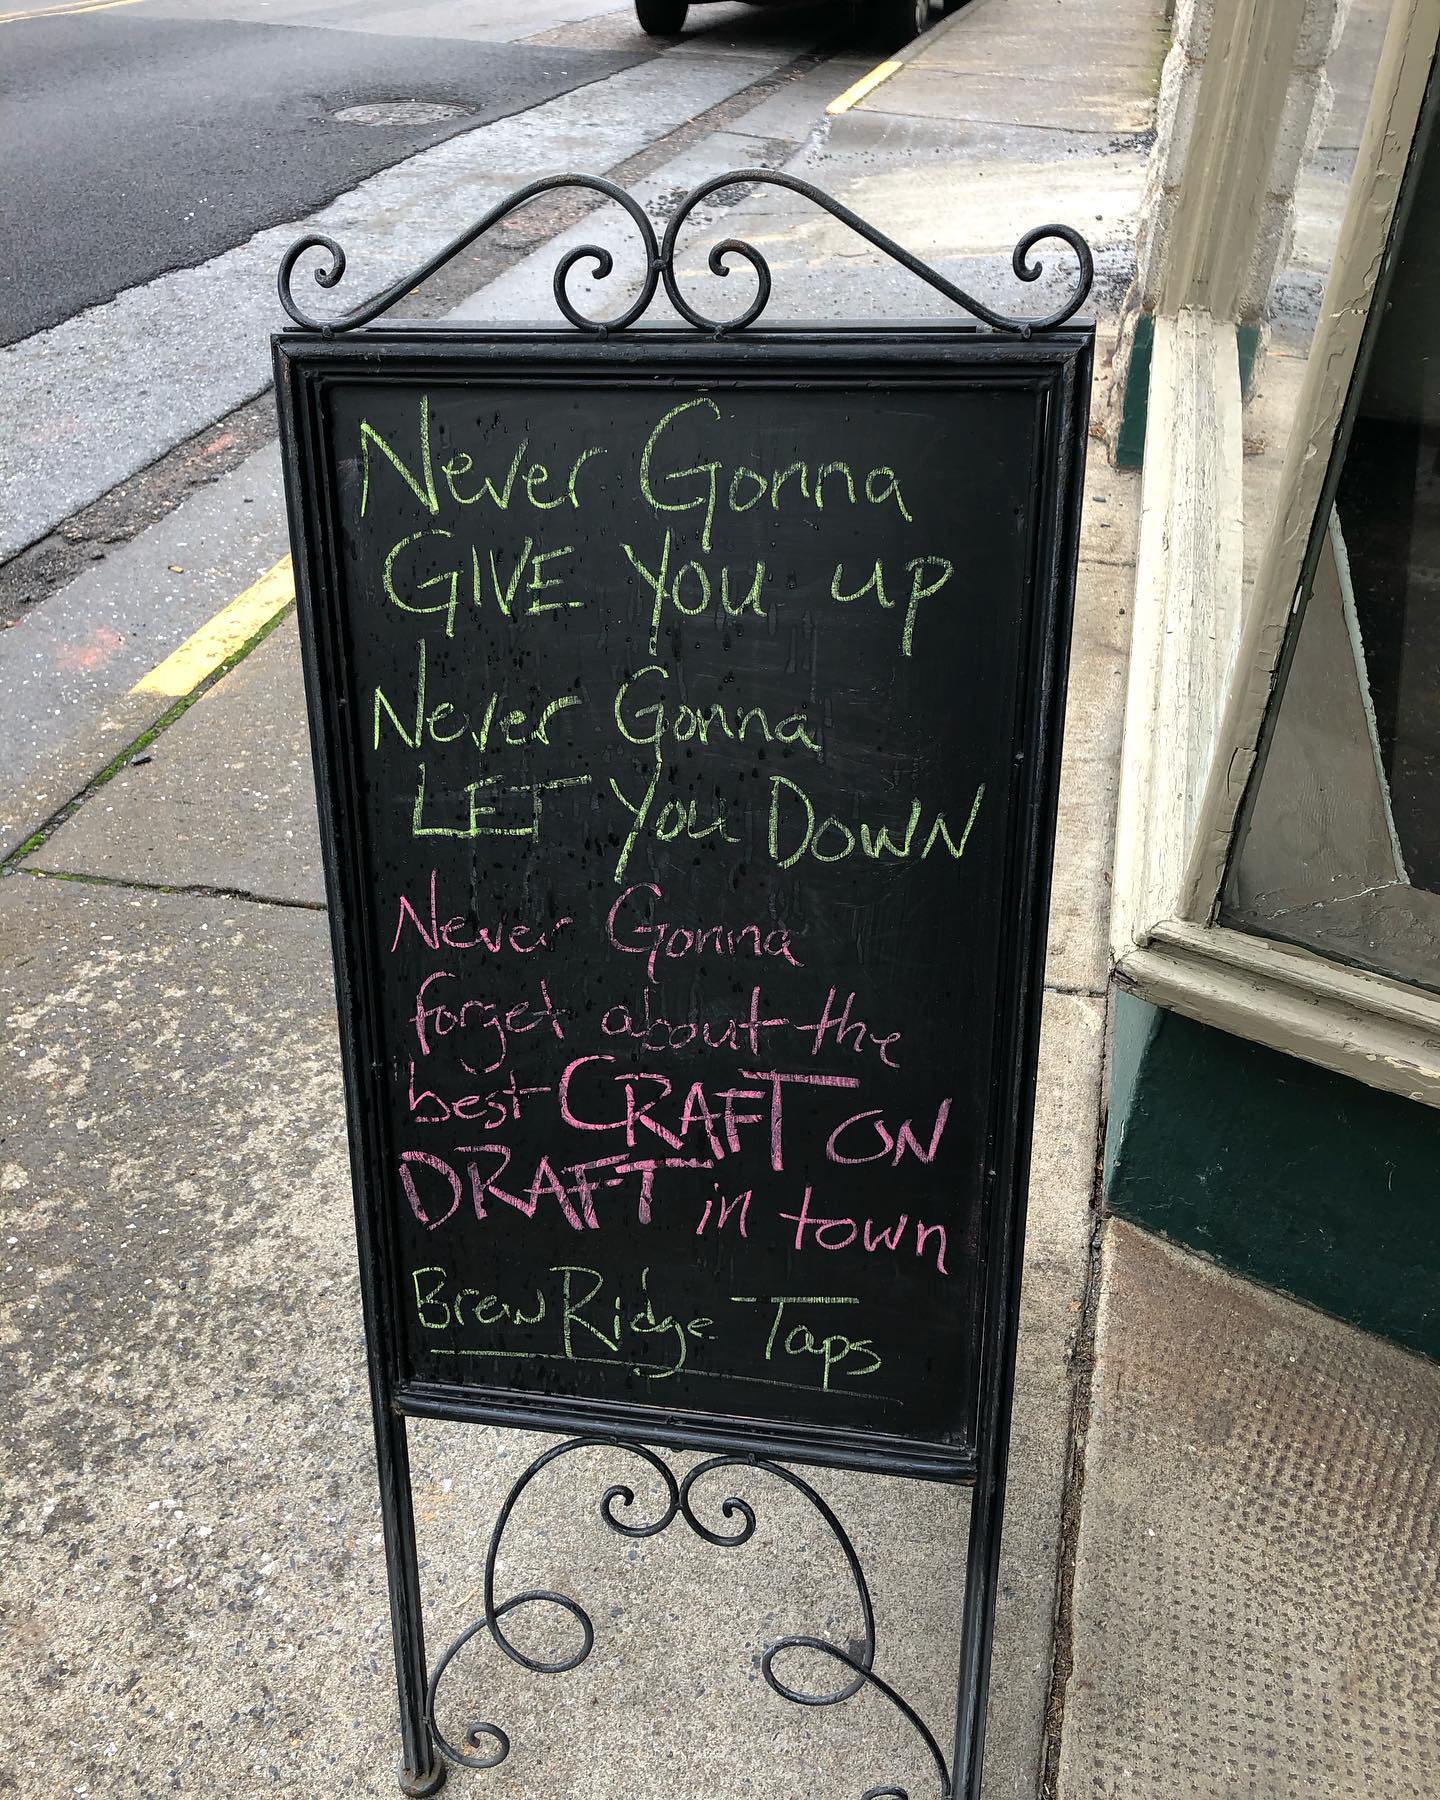 Never Gonna
GIVE You up
Never Gonna
LET You DOWN
Never Gonna
forget about the
best CRAFT ON
DRAFT in town
Brew Ridge Taps